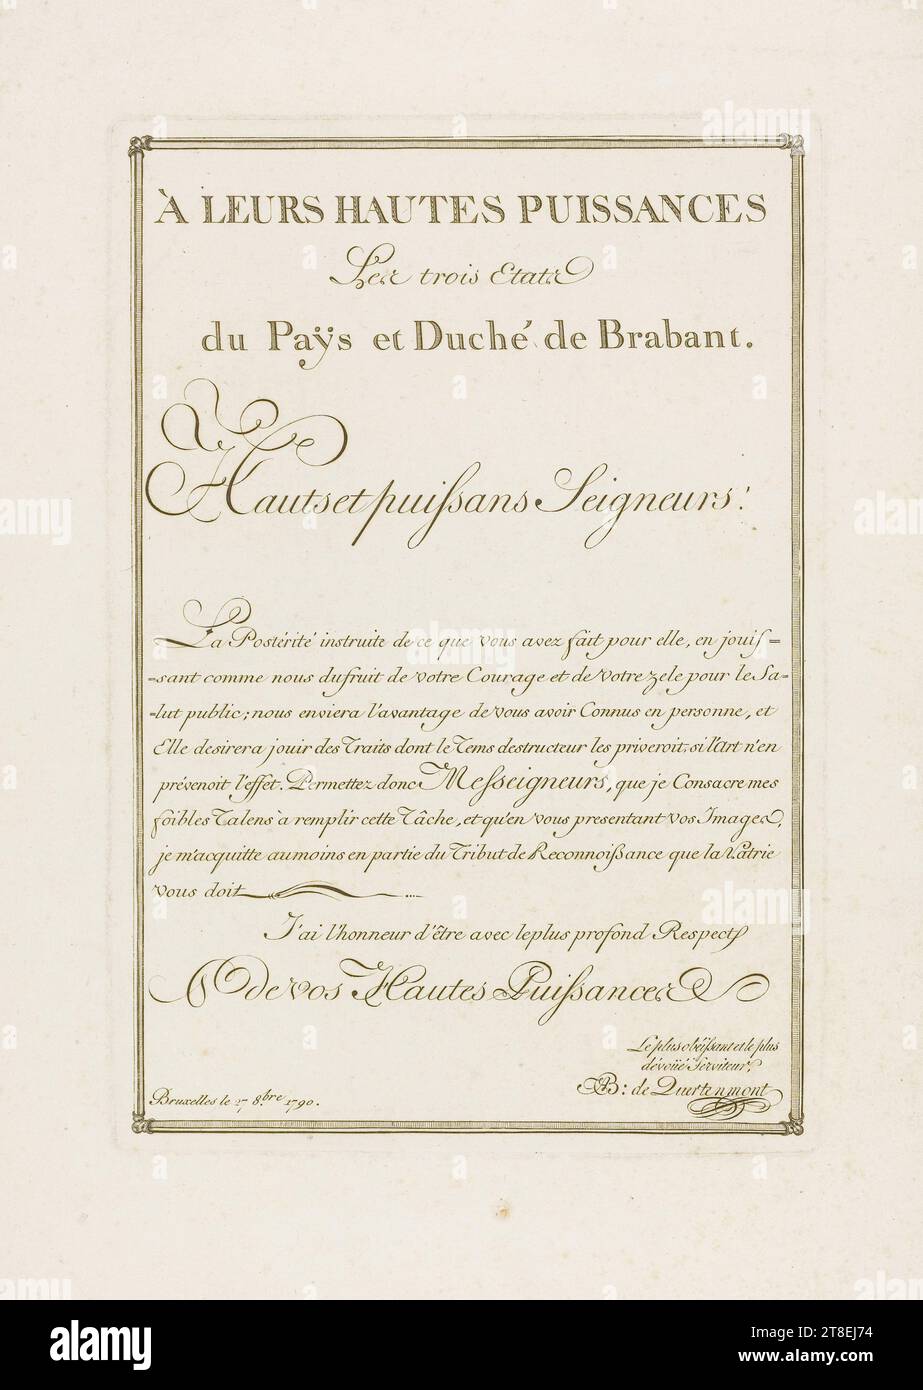 À LEURS HAUTES PUISSANCES
Les trois Etats
du Paÿs et Duché de Brabant.
Hauts et puissans Seigneurs!
La Postérité instruite de ce que vous avez fait pour elle, en jouis=
=sant comme nous du fruit de votre Courage et de votre zele pour le Sa=
=lut public; nous enviera l'avantage de vous avoir Connus en personne, et
Elle desirera jouir des Traits dont le Tems destructeur les priveroit, si l'Art n'en
prévenoit l'effet. Permettez donc Messeigneurs, que je Consacre mes
foibles Talens à remplir cette Tâche, et qu'en vous presentant vos Images,
je m'acquitte au moins en partie du Tribut de Reconnoissance que la Patrie
vous doit
J'ai l'honneur d'être avec le plus profond Respect
de vos Hautes Puissances
Le plus obéissant et le plus
dévoüé Serviteur,
AB: de Quertenmont
Bruxelles le 27 8.bre 1790.
alamy
Image ID: 2T8EJ74
www.alamy.com